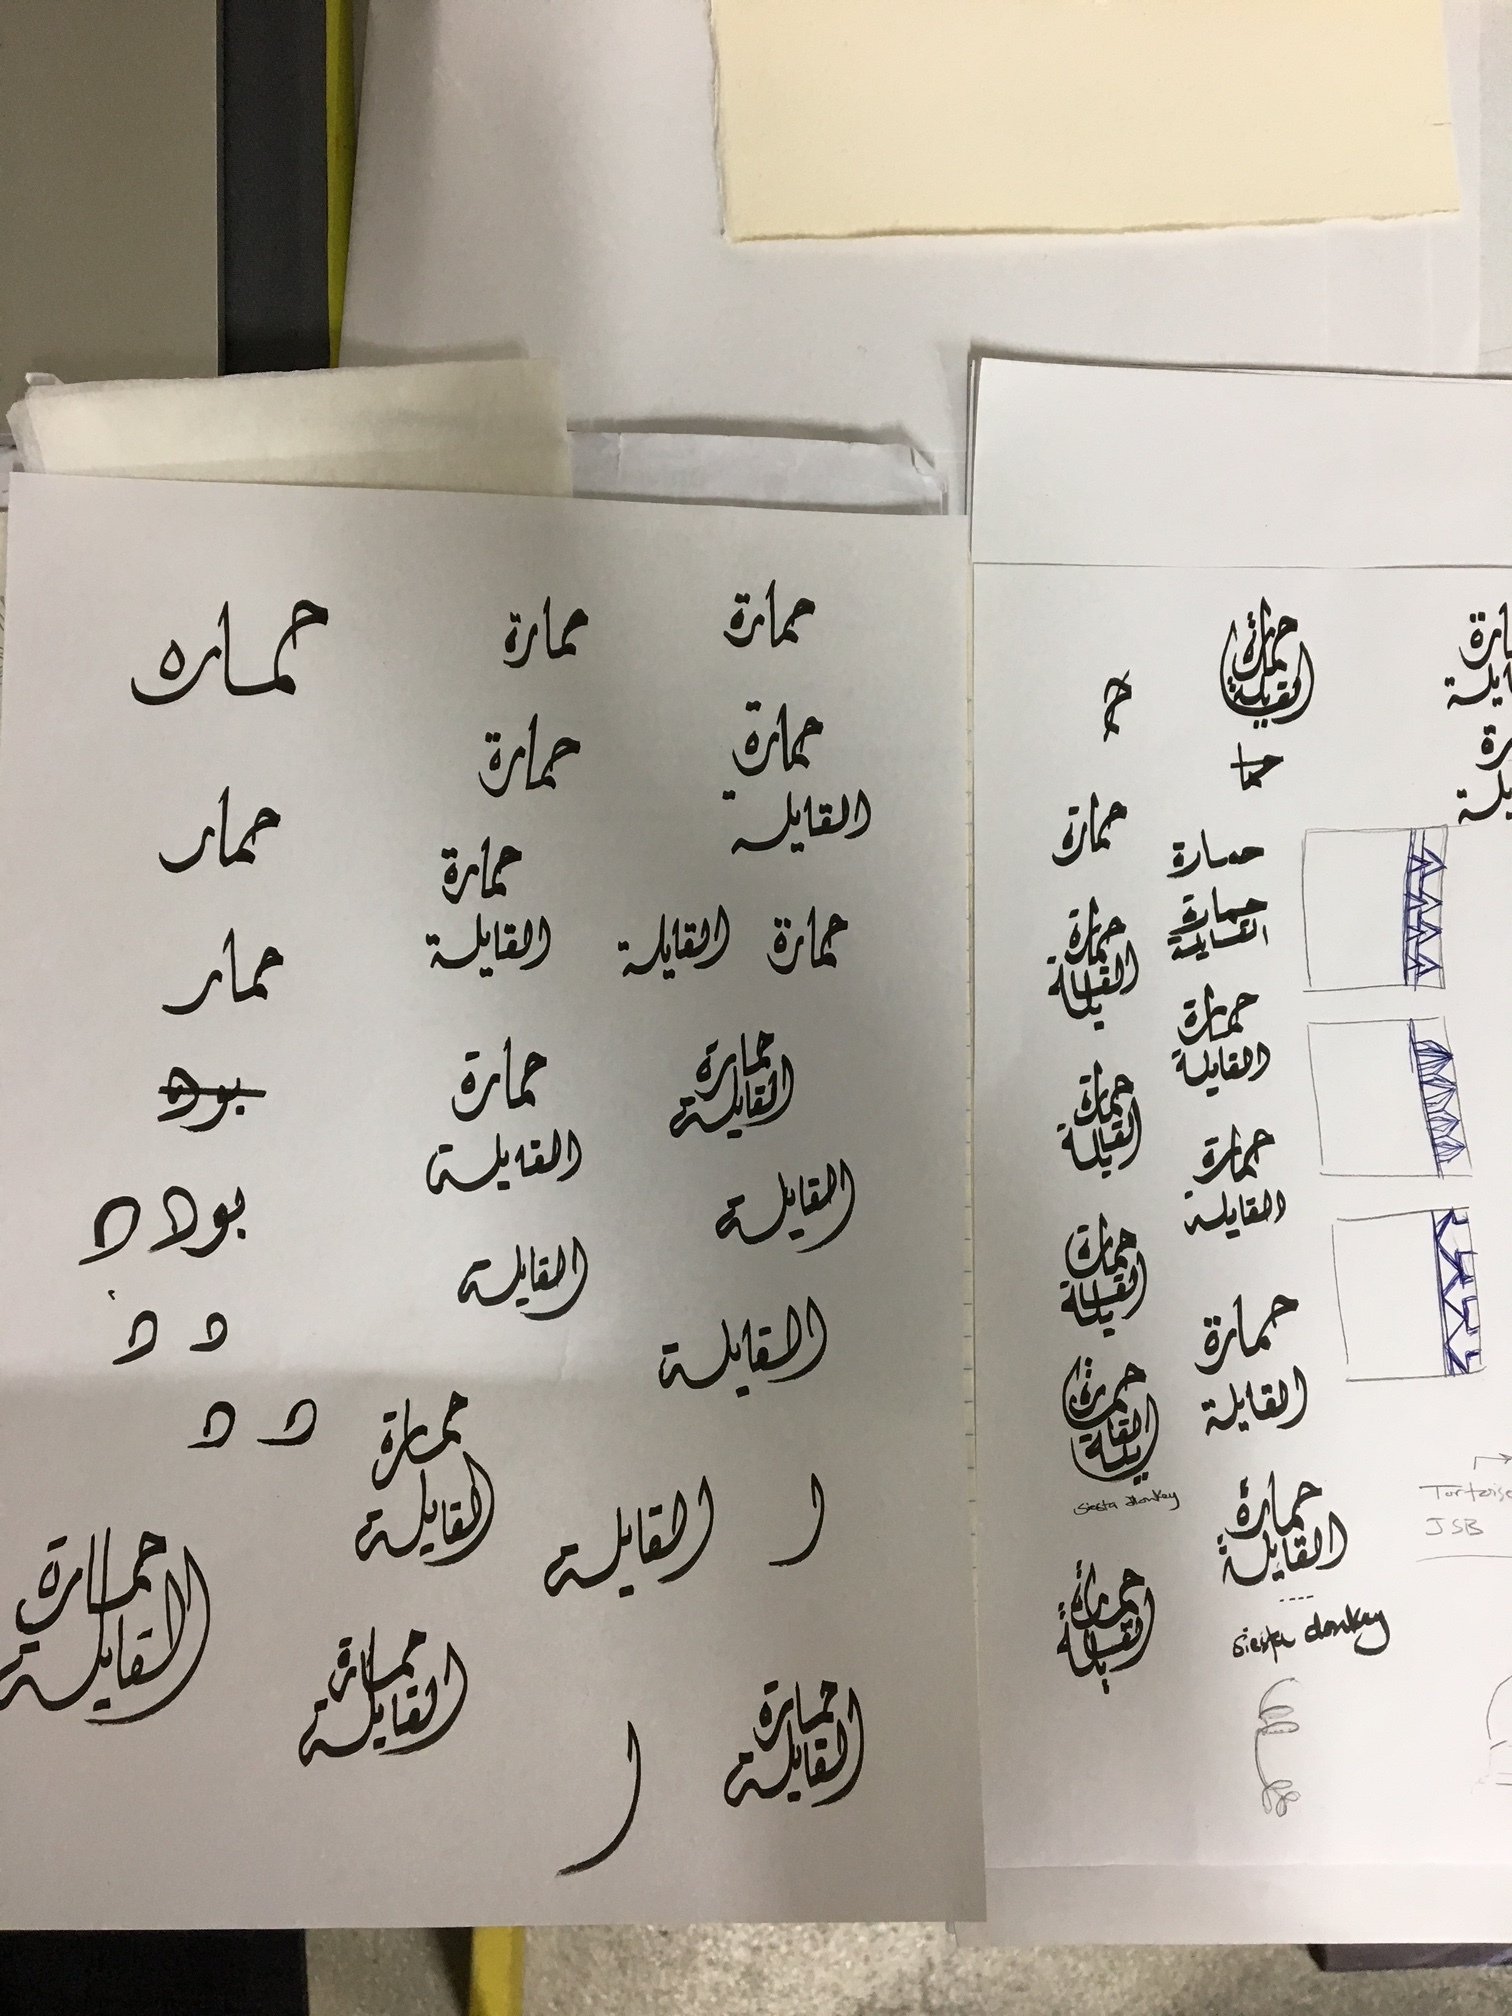 حماره
حمارة
حمارة
حمارة
حمارة
القايلة
حمار
حمارة
القايلة
حمارة القايلة
حمار
حمارة
القايلة
حمارة
القايلة
القايلة
القايلة
القايلة
حمارة
القايلة
القايلة
ا
حمارة
القايلة
حمارة
القايلة
ا
حمارة
القايلة
حمارة
القايلة
حمارة
حما
حمارة
حمارة
القايلة
حمارة
القايلة
حمارة
القايلة
حمارة
القايلة
حمارة
القايلة
حمارة
القايلة
حمارة
القايلة
حمارة
القايلة
siesta donkey
حمارة
القايلة
siesta donkey
حمارة
القايلة
Tortoise
JSB